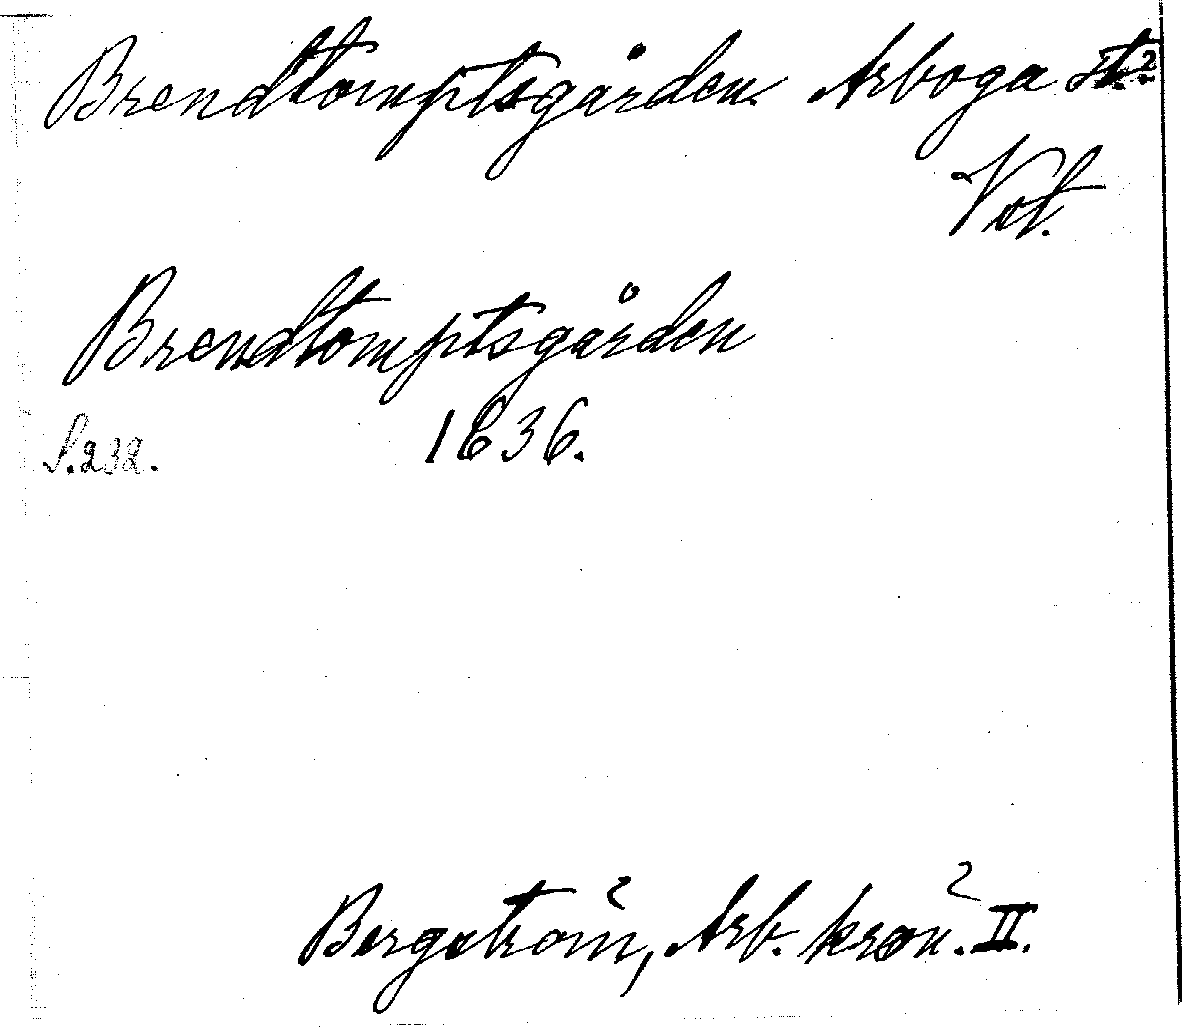 Brendtomptsgården. Arboga st.?
Vstl.
Brendtomptsgården
S. 232. 1636.
Bergström, Arb. krön. II.